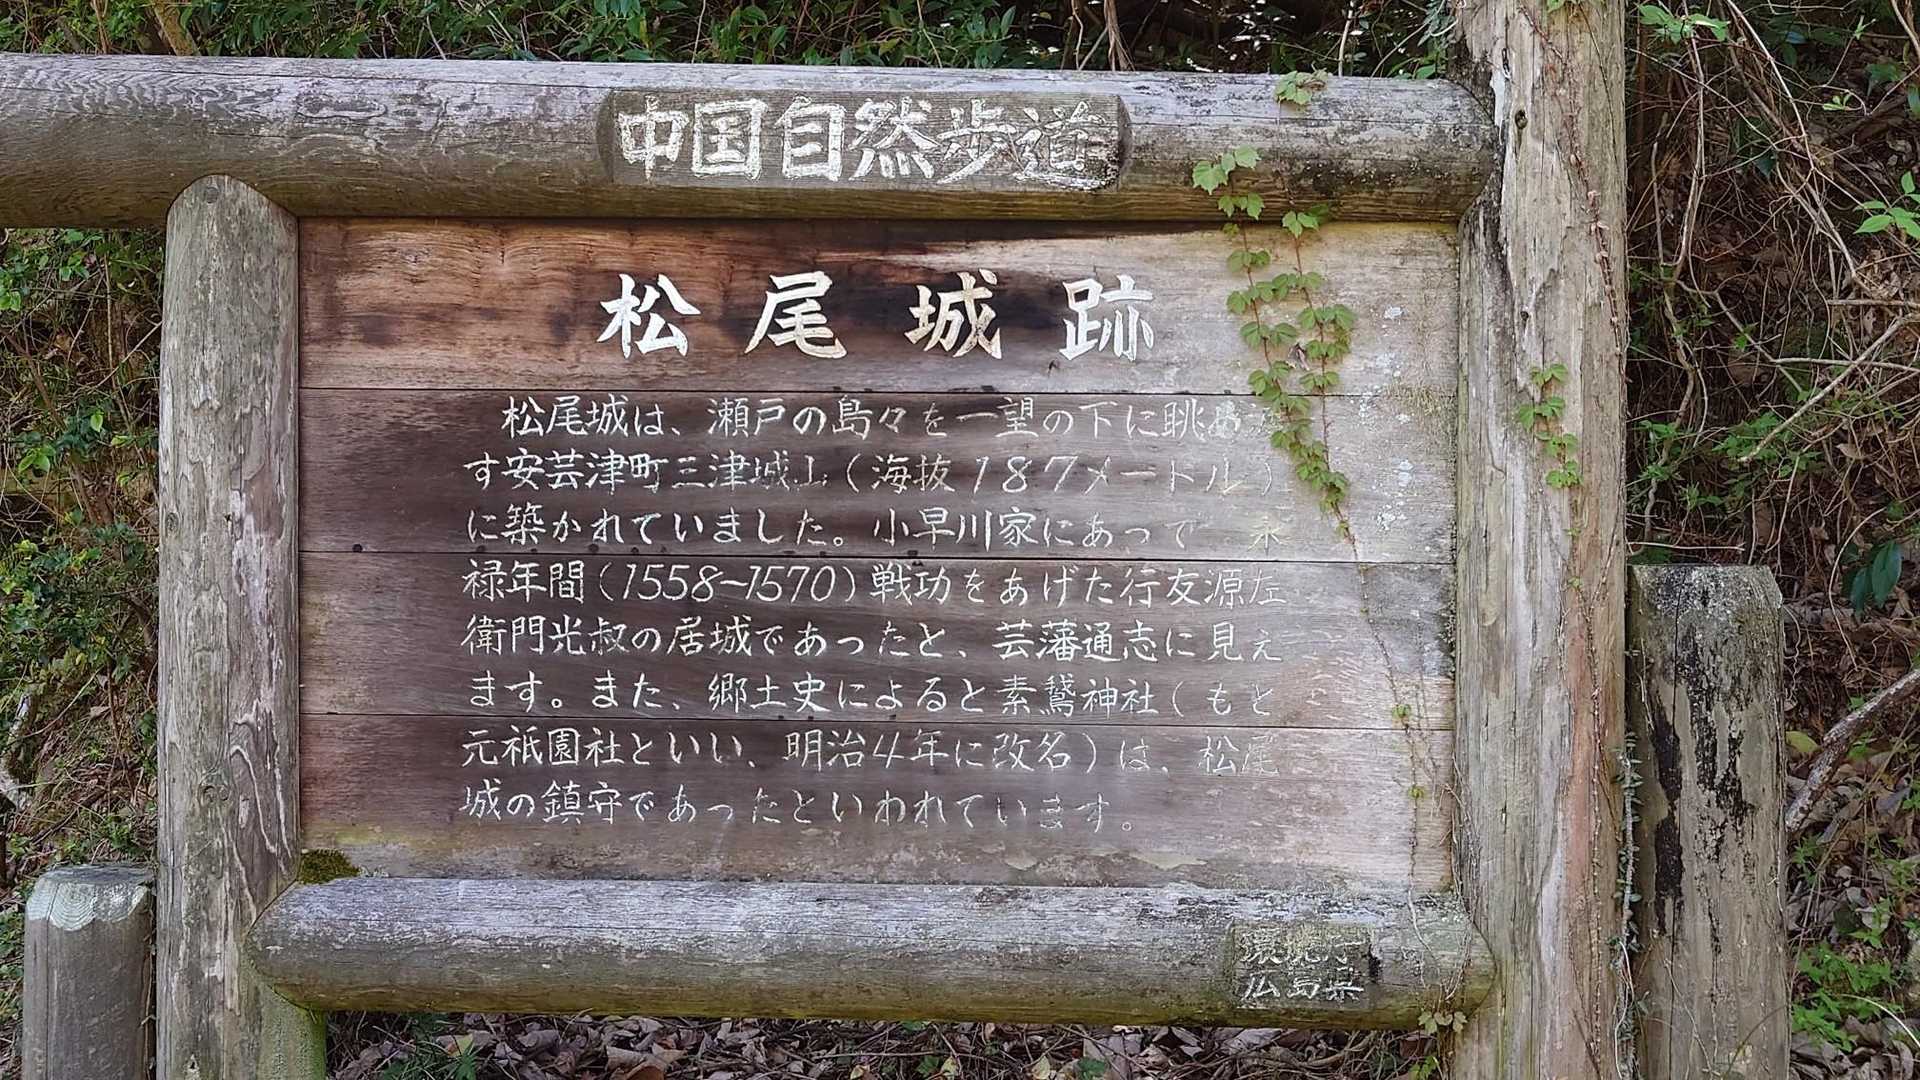 中国自然歩道
松尾城跡
松尾城は、瀬戸の島々を一望の下に眺め渡
す安芸津町三津城山（海抜187メートル）
に築かれていました。小早川家にあって 永
禄年間（1558~1570）戦功をあげた行友源左
衛門光叔の居城であったと、芸藩通志に見え
ます。また、郷土史によると素鵞神社（もと
元祇園社といい、明治4年に改名）は、松尾
城の鎮守であったといわれています。
環境庁
広島県